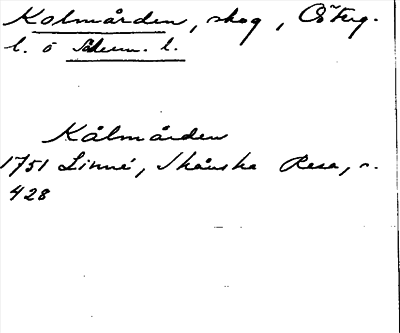 Kolmården, skog, Österg.
l. o Söderm. l.
Kålmården
1751 Linné, Skånska Resa, s.
428